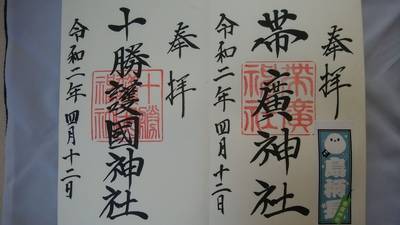 奉拝
帯廣神社
帯廣神社
令和二年四月十二日
奉拝
十勝護國神社
十勝護國神社
令和二年四月十二日